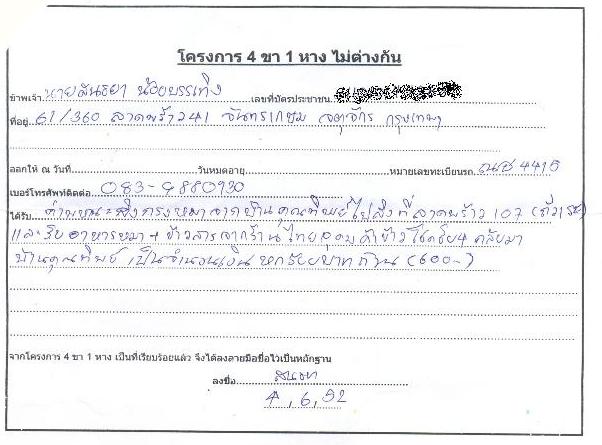 โครงการ 4 ขา 1 หาง ไม่ต่างกัน
ข้าพเจ้า นายสนธยา น้อยบรรเทิง เลขที่บัตรประชาชน
ที่อยู่ 61/360 ลาดพร้าว 41 จันทรเกษม จตุจักร กรุงเทพฯ
ออกให้ ณ วันที่ วันหมดอายุ หมายเลขทะเบียนรถ ณช 4415
เบอร์โทรศัพท์ติดต่อ 083-9880930
ได้รับ ค่าพาหนะส่งกรงหมาจากบ้านคุณทิพย์ไปส่งที่ลาดพร้าว 107
และรับอาหารหมา + ข้าวสารจากร้านไทยอุดมค้าข้าวโชคชัย 4 กลับมา
บ้านคุณทิพย์ เป็นจำนวนเงิน หกร้อยบาทถ้วน (600-)
จากโครงการ 4 ขา 1 หาง เป็นที่เรียบร้อยแล้ว จึงได้ลงลายมือชื่อไว้เป็นหลักฐาน
ลงชื่อ สนธยา
4, 6, 52